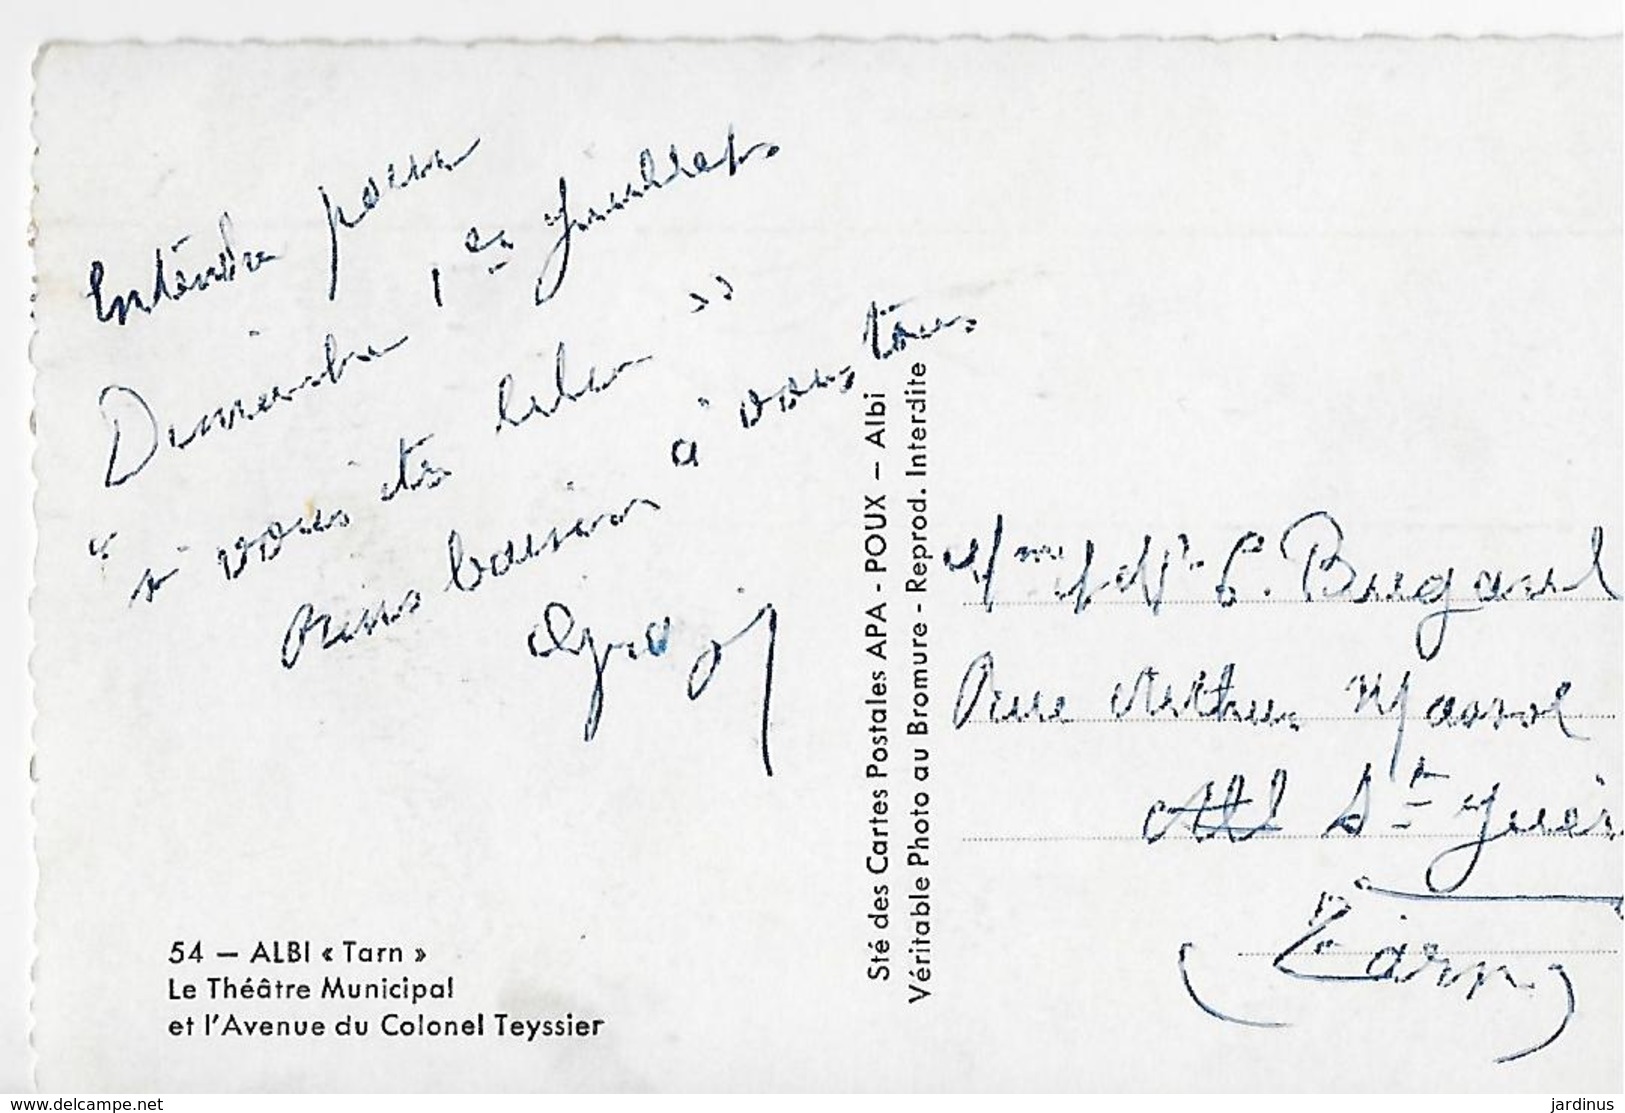 Entendu pour
Dimanche 1er Juillet
" si vous êtes libre "
Bons baisers à vous tous
Sté des Cartes Postales APA - POUX – Albi
Véritable Photo au Bromure - Reprod. Interdite
P. Bugarel
Rue Arthur Massol
St Juér
(Tarn)
54 — ALBI « Tarn »
Le Théâtre Municipal
et l'Avenue du Colonel Teyssier
www.delcampe.net
jardinus